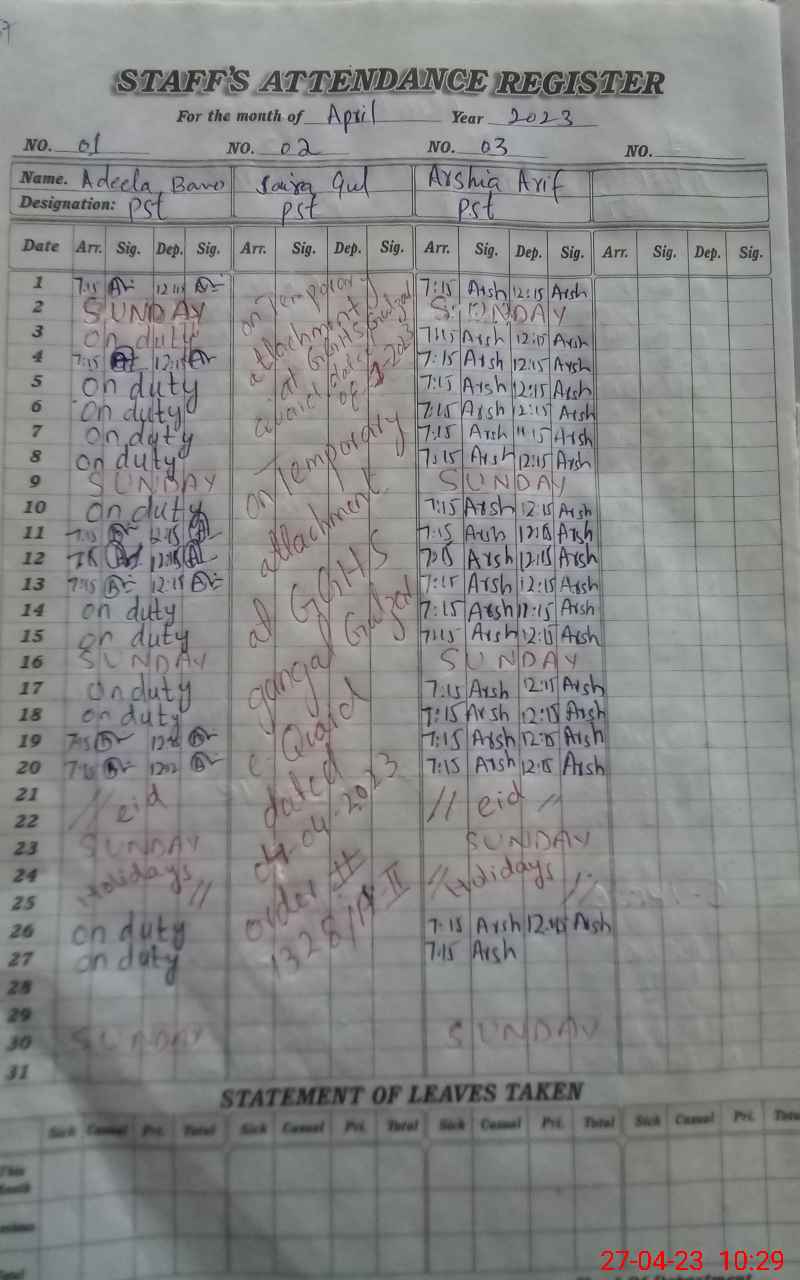 STAFF'S ATTENDANCE REGISTER
For the month of April Year 2023
NO. 01 NO. 02 NO. 03 NO.
Name. Adeela Bano Saira Gul Arshia Arif
Designation: PST PST PST
Date Arr. Sig. Dep. Sig. Arr. Sig. Dep. Sig. Arr. Sig. Dep. Sig. Arr. Sig. Dep. Sig.
1 7:15 12:15 on Temporary 7:15 Arsh 12:15 Arsh
2 SUNDAY attachment SUNDAY
3 on duty at GGHS 7:15 Arsh 12:15 Arsh
4 7:15 12:15 7:15 Arsh 12:15 Arsh
5 on duty 7:15 Arsh 12:15 Arsh
6 on duty 7:15 Arsh 12:15 Arsh
7 on duty 7:15 Arsh 11:15 Arsh
8 on duty on Temporary 7:15 Arsh 12:15 Arsh
9 SUNDAY SUNDAY
10 on duty attachment 7:15 Arsh 12:15 Arsh
11 7:15 12:15 7:15 Arsh 12:15 Arsh
12 7:15 12:15 7:15 Arsh 12:15 Arsh
13 7:15 12:15 at GGHS 7:15 Arsh 12:15 Arsh
14 on duty 7:15 Arsh 11:15 Arsh
15 on duty 7:15 Arsh 12:15 Arsh
16 SUNDAY SUNDAY
17 on duty 7:15 Arsh 12:15 Arsh
18 on duty 7:15 Arsh 12:15 Arsh
19 7:15 Quaid 7:15 Arsh 12:15 Arsh
20 7:15 dated 7:15 Arsh 12:15 Arsh
21 // eid // eid //
22 04-04-2023
23 SUNDAY SUNDAY
24 Holidays // order # // Holidays //
25 1328/
26 on duty 7:15 Arsh 12:45 Arsh
27 on duty 7:15 Arsh
28
29
30 SUNDAY SUNDAY
31
STATEMENT OF LEAVES TAKEN
Sick Casual Pri. Total Sick Casual Pri. Total Sick Casual Pri. Total Sick Casual Pri. Total
27-04-23 10:29